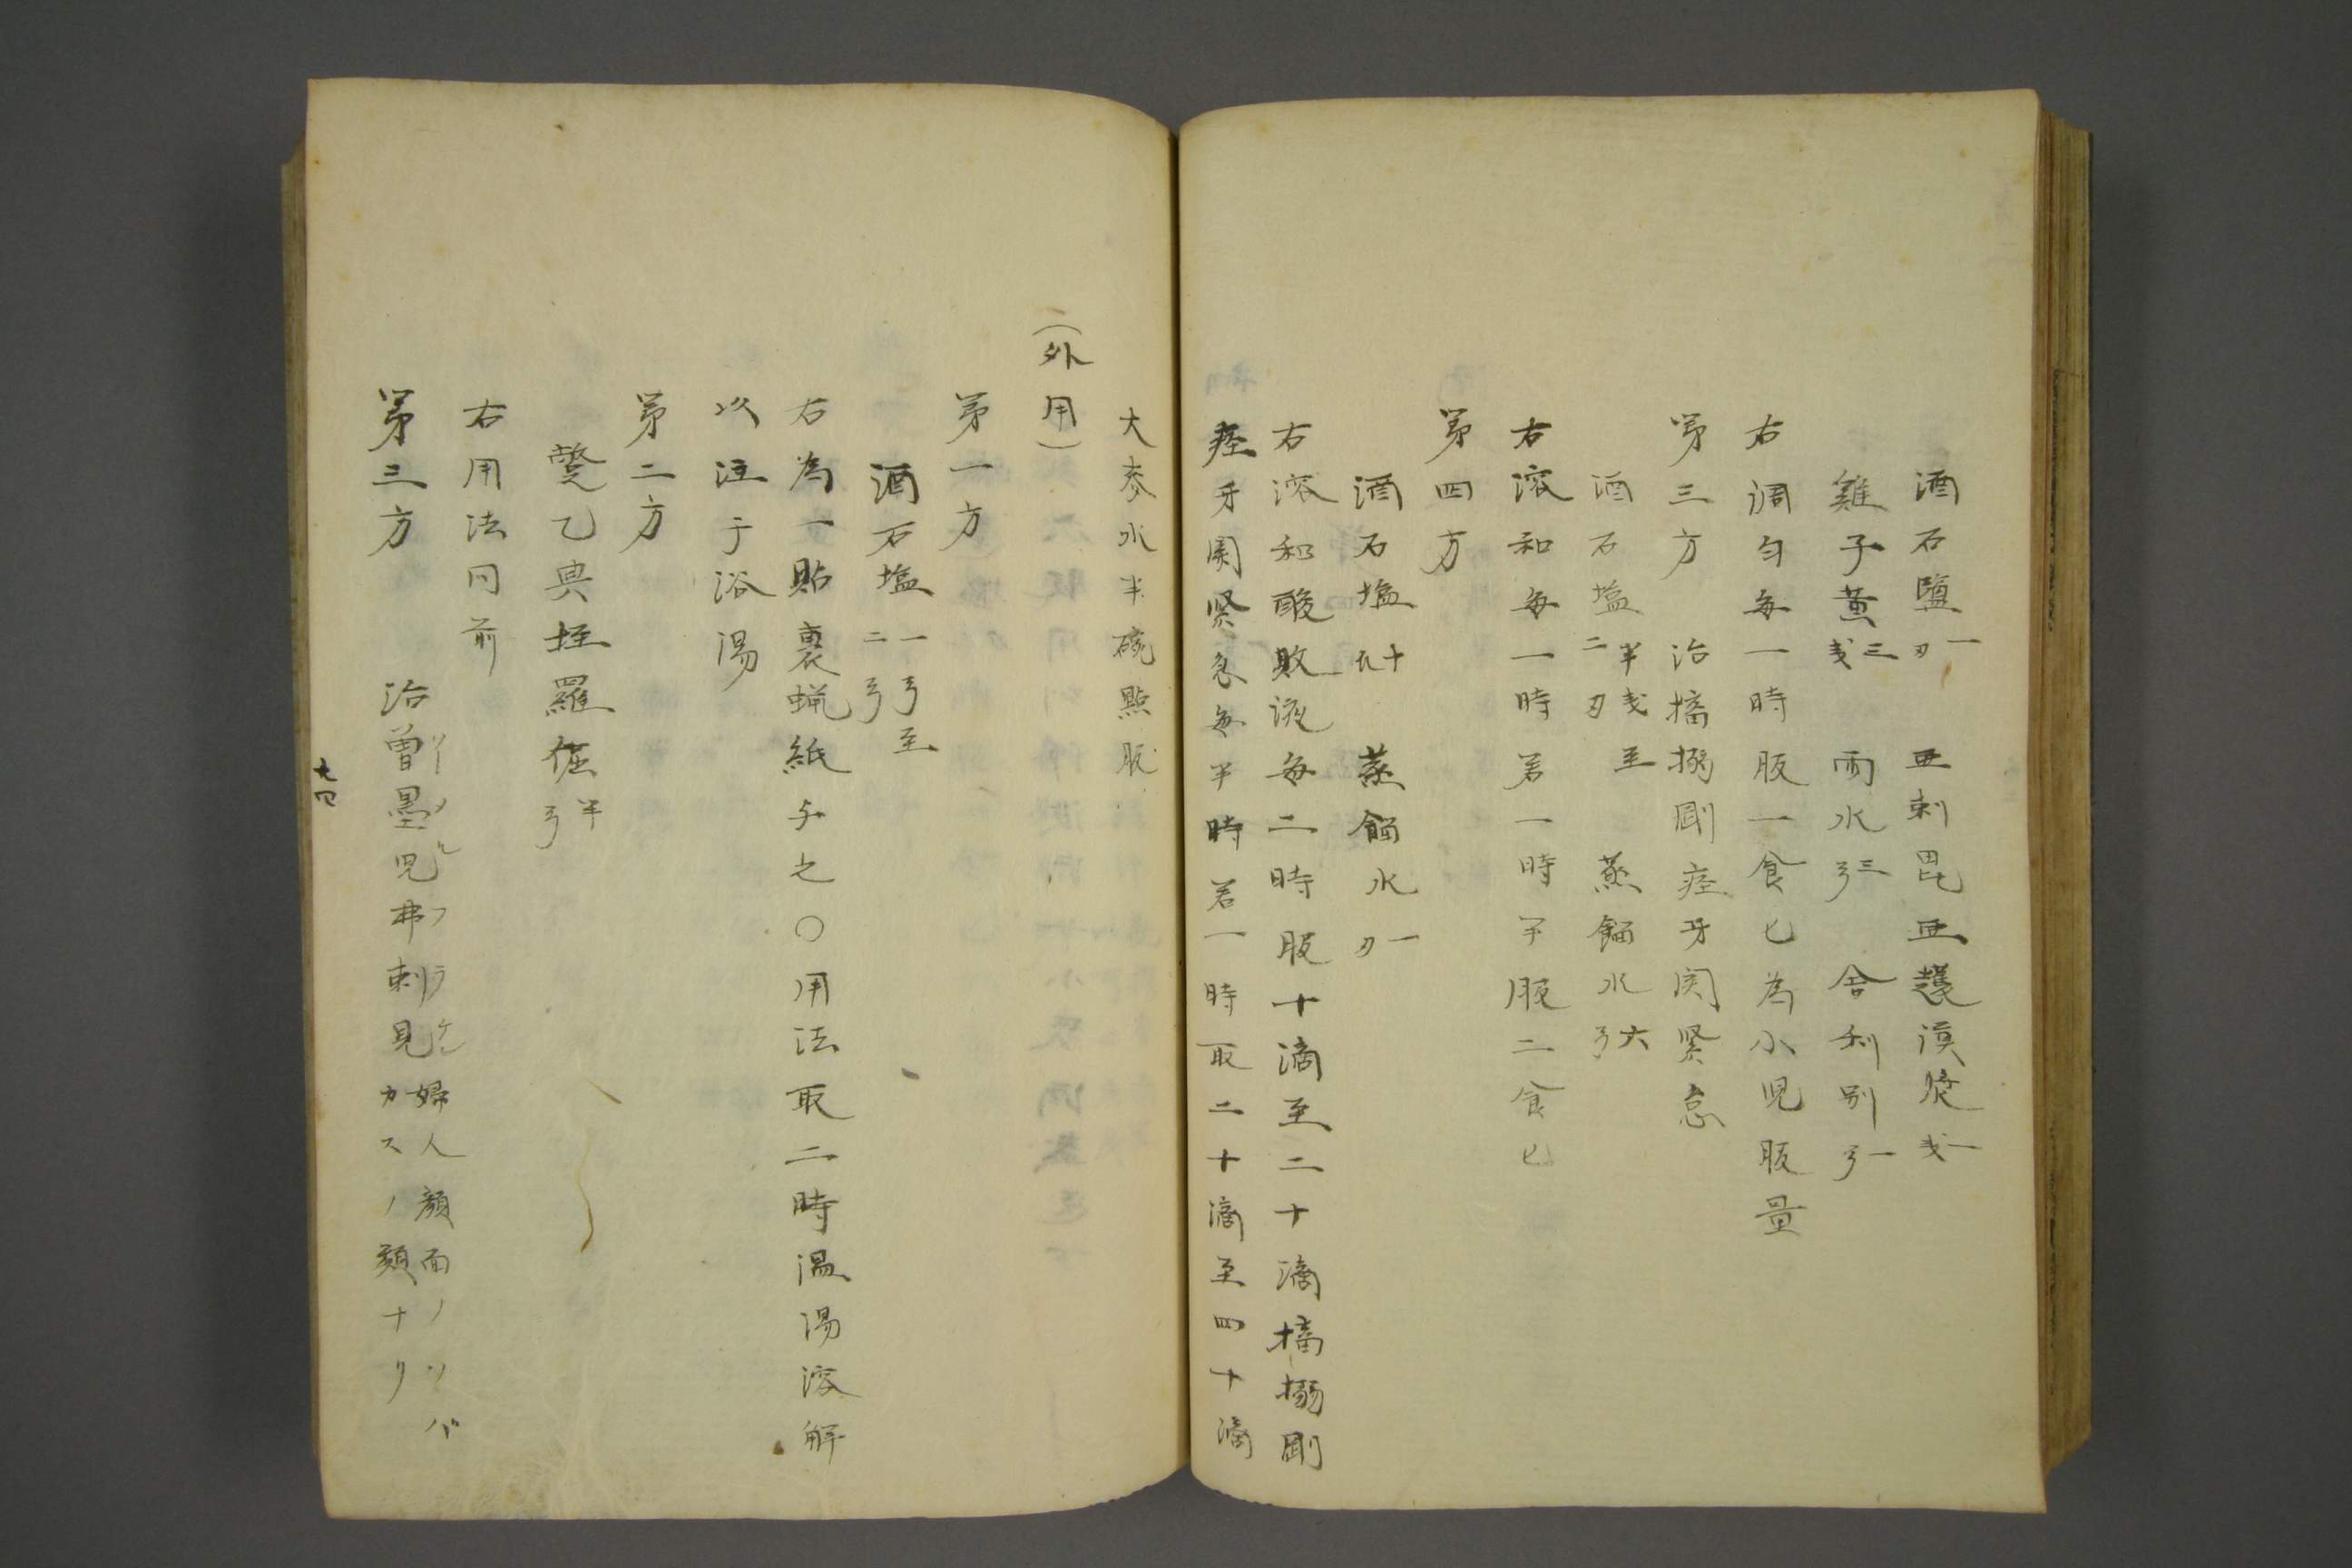 酒石鹽一刃　亜刺毘亜護謨漿一戔
雞子黄三戔　雨水三弓　舎利別一弓
右調匀毎一時服一食匕為小児服量
第三方　治搐搦剛痙牙関緊急
酒石塩半戔至二刃　蒸餾水六弓
右溶和毎一時若一時半服二食匕
第四方
酒石塩十九　蒸餾水一刃
右溶和酸敗液毎二時服十滴至二十滴搐搦剛
痙牙関緊急毎半時若一時取二十滴至四十滴
大麥水半碗點服
(外用)
第一方
酒石塩一弓至二弓
右為一貼裹蝋紙与之〇用法取二時温湯溶解
以注于浴湯
第二方
甃乙輿垤羅倔半弓
右用法同前
第三方　治曽墨児弗剌見ソーメルフラケン婦人顔面ノソバカスノ類ナリ
九四